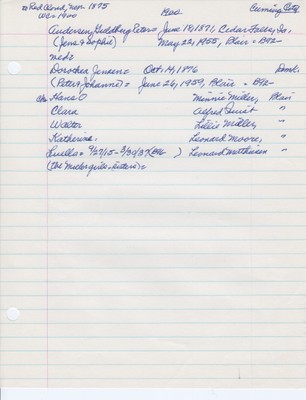 to Red Cloud, Nebr. 1875
WC = 1900
Cuming City
Andersen, Guldborg Peter = June 19, 1871, Cedar Falls, Ia.
(Jens & Sophie) May 22, 1955, Blair = BRC
Med =
Dorothea Jensen = Oct. 14, 1876 Denk.
(Peter & Johanne) = June 26, 1959, Blair = BRC
Ch Hans O Minnie Miller, Blair
Clara Alfred Quist "
Walter Lillie Miller "
Katherine, Leonard Moore, "
Luella = 9/27/15 - 3/30/37 ) Leonard Mathiesen "
(the Miller girls = sisters) =